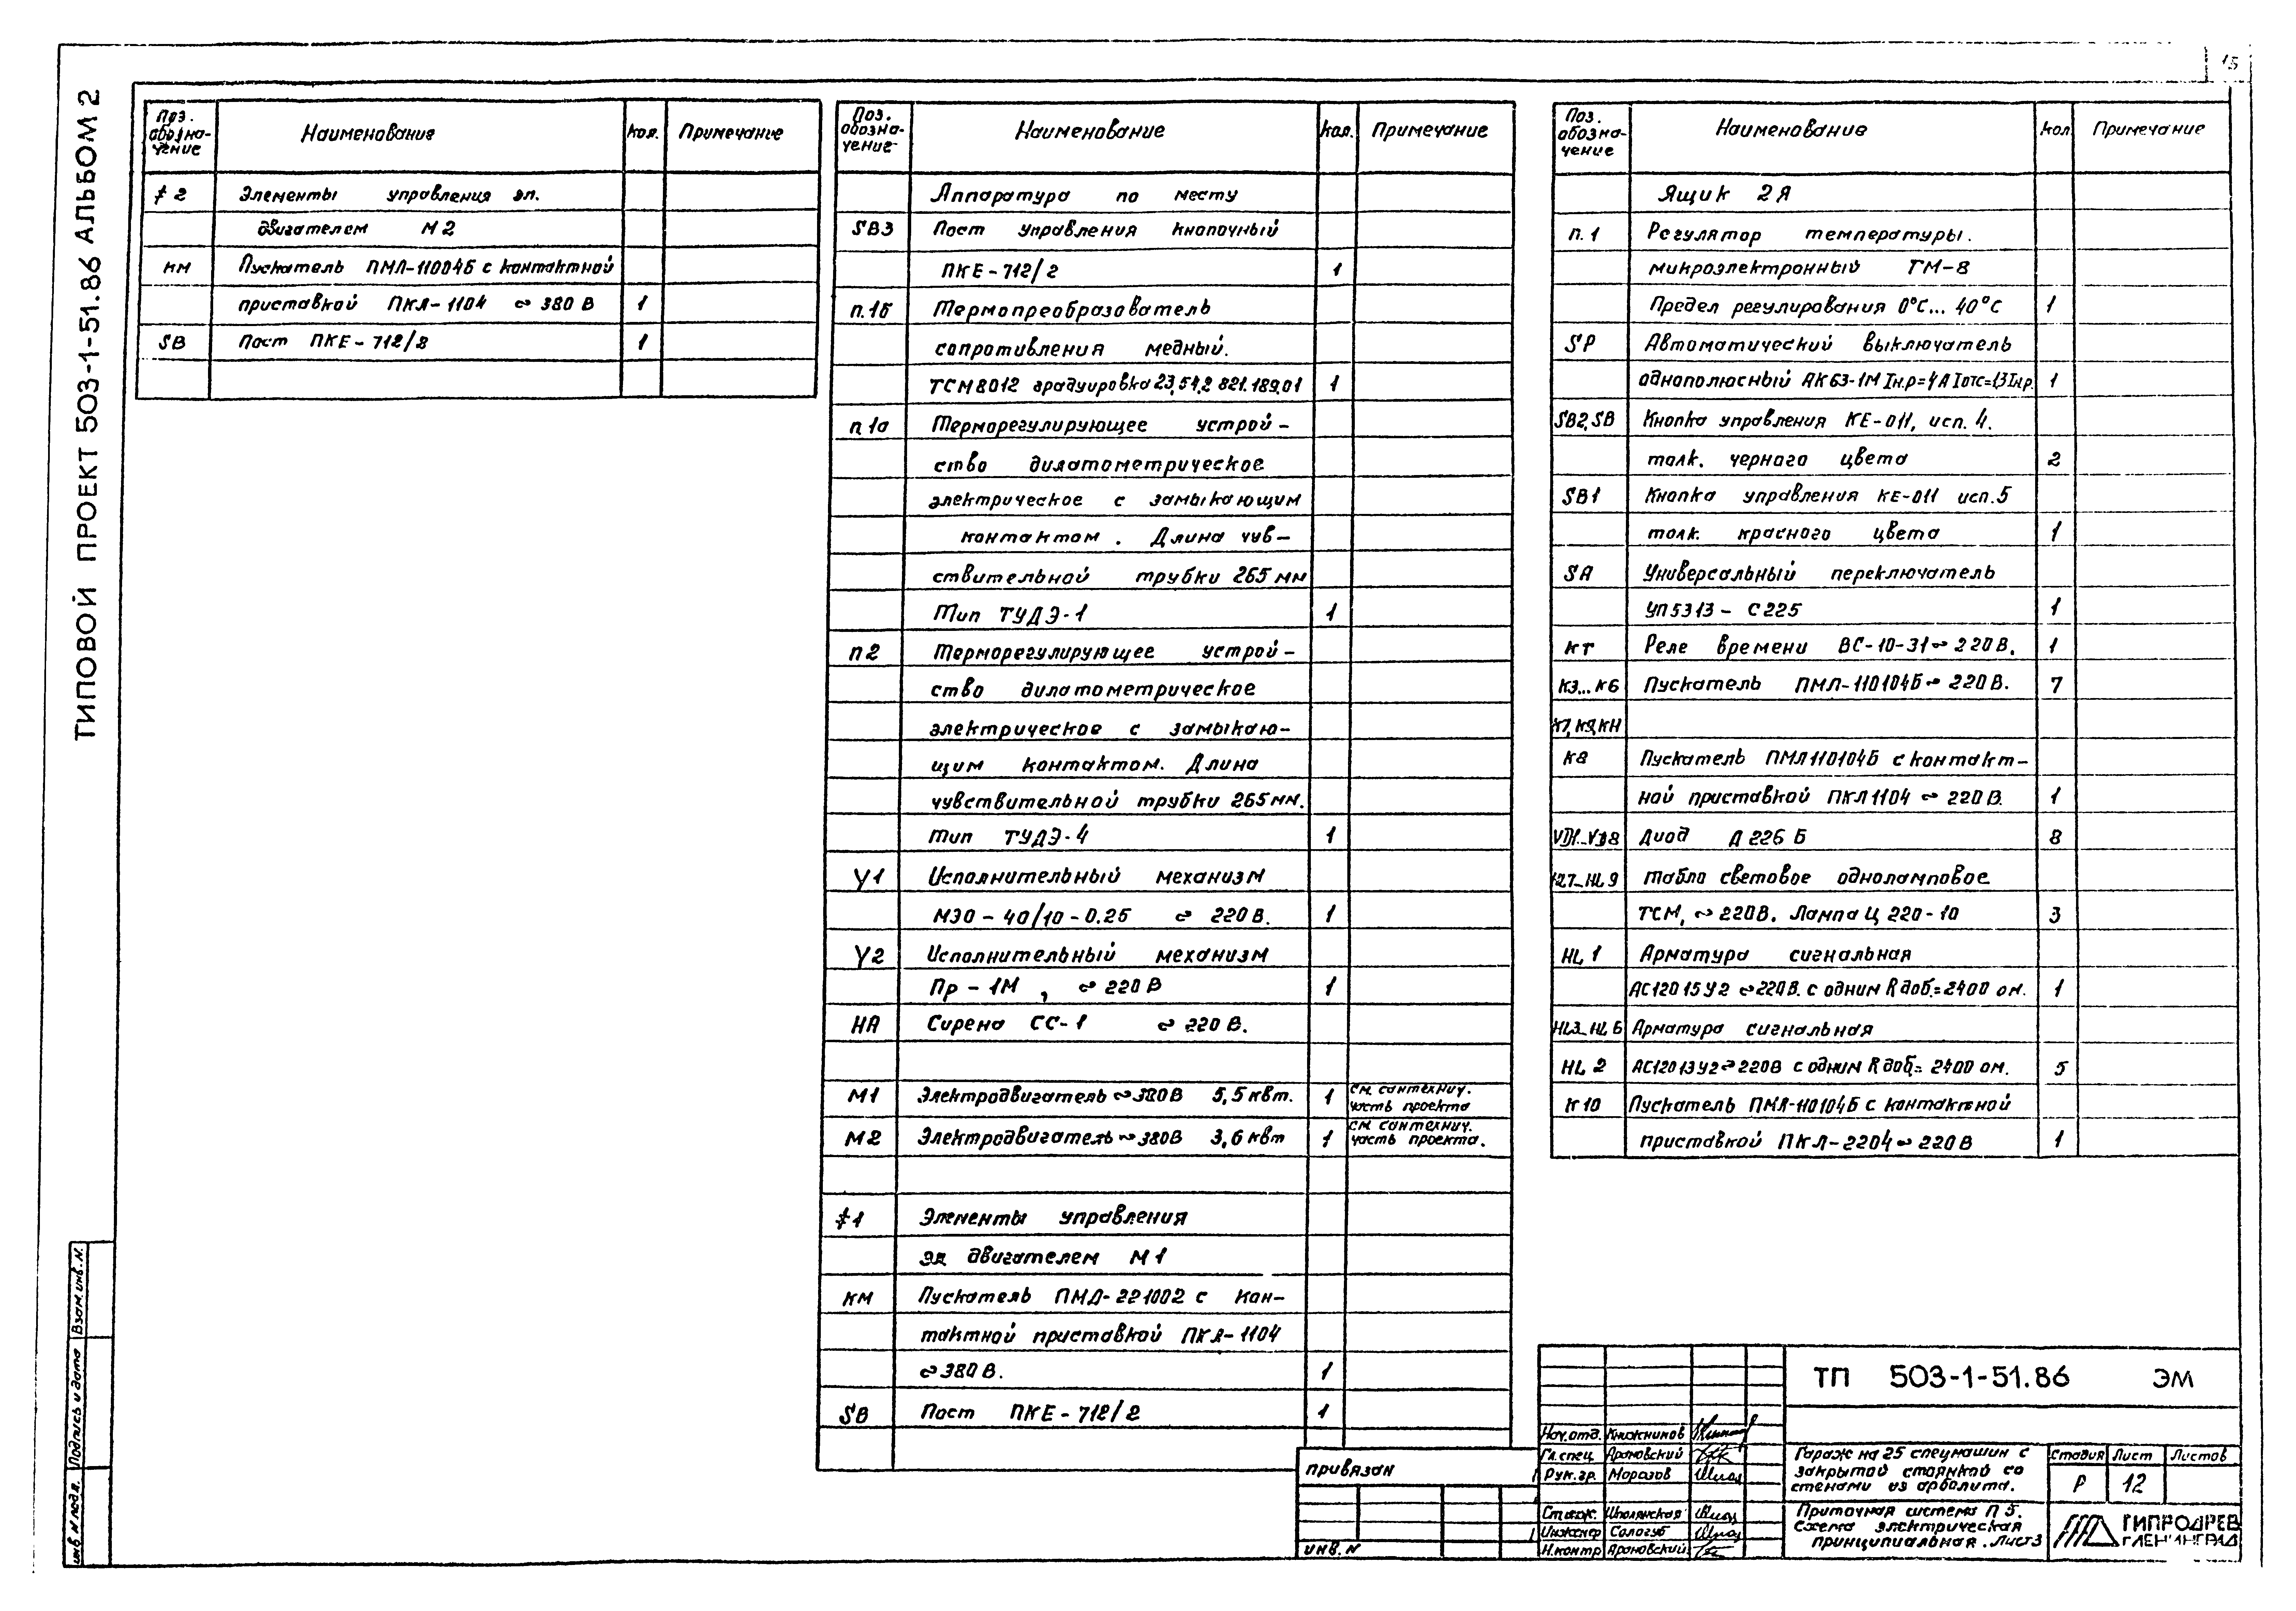 15
ТИПОВОЙ ПРОЕКТ 503-1-51.86 АЛЬБОМ 2
Поз. обозна-чение Наименование Кол. Примечание
⨍2 Элементы управления эл.
двигателем М2
КМ Пускатель ПМЛ-11004Б с контактной
приставкой ПКЛ-1104 ~ 380 В 1
SB Пост ПКЕ-712/2 1
Поз. обозна-чение Наименование Кол. Примечание
Аппаратура по месту
SB3 Пост управления кнопочный
ПКЕ-712/2 1
п.1б Термопреобразователь
сопротивления медный.
ТСМ8012 градуировка 23, 5Ц2 821.189.01 1
п.1а Терморегулирующее устрой-
ство дилатометрическое
электрическое с замыкающим
контактом. Длина чув-
ствительной трубки 265 мм
Тип ТУДЭ-1 1
п2 Терморегулирующее устрой-
ство дилатометрическое
электрическое с замыкаю-
щим контактом. Длина
чувствительной трубки 265 мм.
Тип ТУДЭ-4 1
У1 Исполнительный механизм
МЭО-40/10-0.25 ~ 220 В. 1
У2 Исполнительный механизм
Пр-1М, ~ 220 В 1
НА Сирена СС-1 ~ 220 В.
М1 Электродвигатель ~ 380 В 5,5 квт. 1 см. сантехнич. часть проекта
М2 Электродвигатель ~ 380 В 3,6 квт 1 см. сантехнич. часть проекта.
⨍1 Элементы управления
эл двигателем М1
КМ Пускатель ПМЛ-221002 с кон-
тактной приставкой ПКЛ-1104
~ 380 В. 1
SB Пост ПКЕ-712/2 1
Поз. обозна-чение Наименование Кол Примечание
Ящик 2Я
п.1 Регулятор температуры.
микроэлектронный ТМ-8
Предел регулирования 0°С... 40°С 1
SP Автоматический выключатель
однополюсный АК63-1М Iн.р=4А Iотс=1,3Iн.р. 1
SB2,SB Кнопка управления КЕ-011, исп. 4.
толк. черного цвета 2
SB1 Кнопка управления КЕ-011 исп.5
толк. красного цвета 1
SA Универсальный переключатель
УП5313-С225 1
КТ Реле времени ВС-10-31 ~ 220 В. 1
К3...К6 Пускатель ПМЛ-110104Б ~ 220 В. 7
К7,К9,КН
К8 Пускатель ПМЛ110104Б с контакт-
ной приставкой ПКЛ1104 ~ 220 В. 1
VD1...VD8 Диод Д 226 Б 8
HL7...HL9 Табло световое одноламповое
ТСМ, ~ 220В. Лампа Ц 220-10 3
HL1 Арматура сигнальная
АС12015У2 ~ 220В. с одним Rдоб.=2400 ом. 1
HL3...HL6 Арматура сигнальная
HL2 АС12013У2 ~ 220В с одним Rдоб.=2400 ом. 5
К10 Пускатель ПМЛ-110104Б с контактной
приставкой ПКЛ-2204 ~ 220 В 1
Взам.инв.N.
Подпись и дата
инв.N подл.
привязан
инв.N
Нач.отд. Книжников
Гл.спец. Ароновский
Рук.гр. Морозов
Ст.инж. Шполянская
Инженер Сологуб
Н.контр Ароновский
ТП 503-1-51.86 ЭМ
Гараж на 25 спецмашин с
закрытой стоянкой со
стенами из арболита.
Стадия Лист Листов
Р 12
Приточная система П 5.
Схема электрическая
принципиальная. Лист3
ГИПРОДРЕВ
Г.ЛЕНИНГРАД